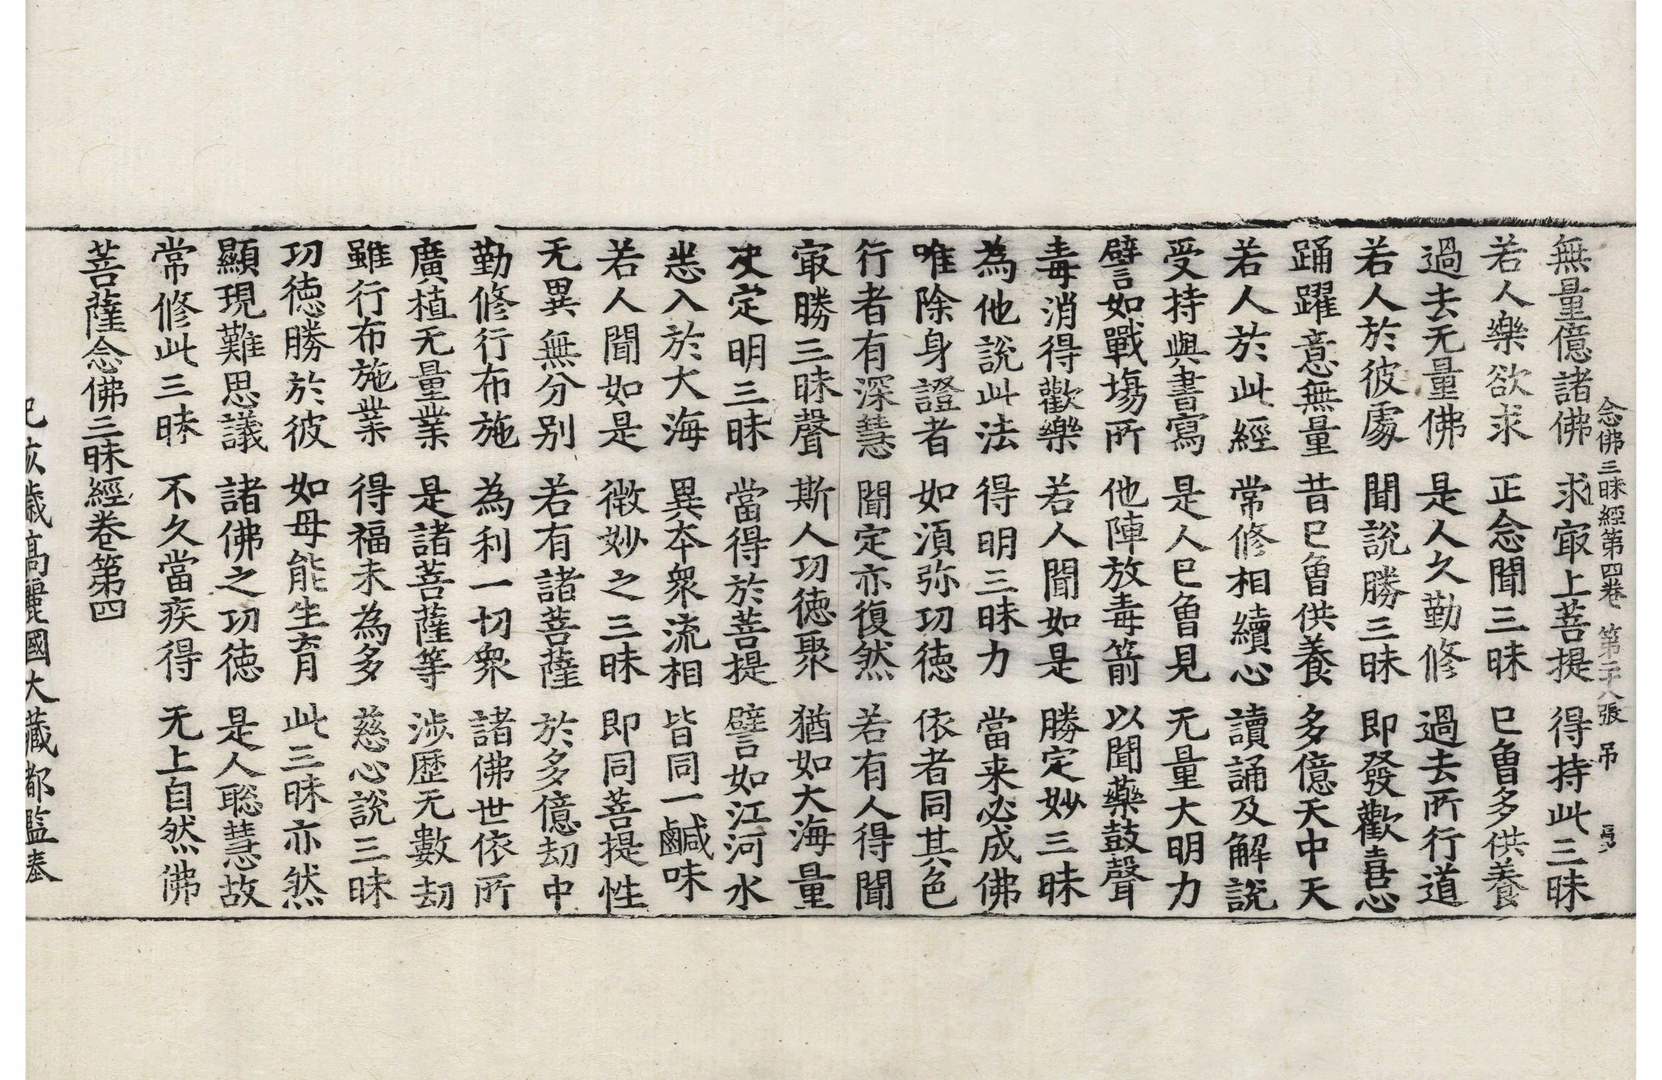 念佛三昧經第四卷 第二十八張 吊
無量億諸佛 求㝡上菩提 得持此三昧
若人樂欲求 正念聞三昧 已曾多供養
過去无量佛 是人久勤修 過去所行道
若人於彼處 聞說勝三昧 即發歡喜心
踊躍意無量 昔已曾供養 多億天中天
若人於此經 常修相續心 讀誦及解說
受持與書寫 是人已曾見 无量大明力
譬如戰塲所 他陣放毒箭 以聞藥鼓聲
毒消得歡樂 若人聞如是 勝定妙三昧
為他說此法 得明三昧力 當来必成佛
唯除身證者 如湏弥功徳 依者同其色
行者有深慧 聞定亦復然 若有人得聞
㝡勝三昧聲 斯人功徳聚 猶如大海量
决定明三昧 當得於菩提 譬如江河水
悉入於大海 異本衆流相 皆同一鹹味
若人聞如是 微妙之三昧 即同菩提性
无異無分别 若有諸菩薩 於多億劫中
勤修行布施 為利一切衆 諸佛世依所
廣植无量業 是諸菩薩等 涉歷无數劫
雖行布施業 得福未為多 慈心說三昧
功徳勝於彼 如母能生育 此三昧亦然
顯現難思議 諸佛之功徳 是人聡慧故
常修此三昧 不久當疾得 无上自然佛
菩薩念佛三昧經卷第四
己亥歳高麗國大藏都監奉